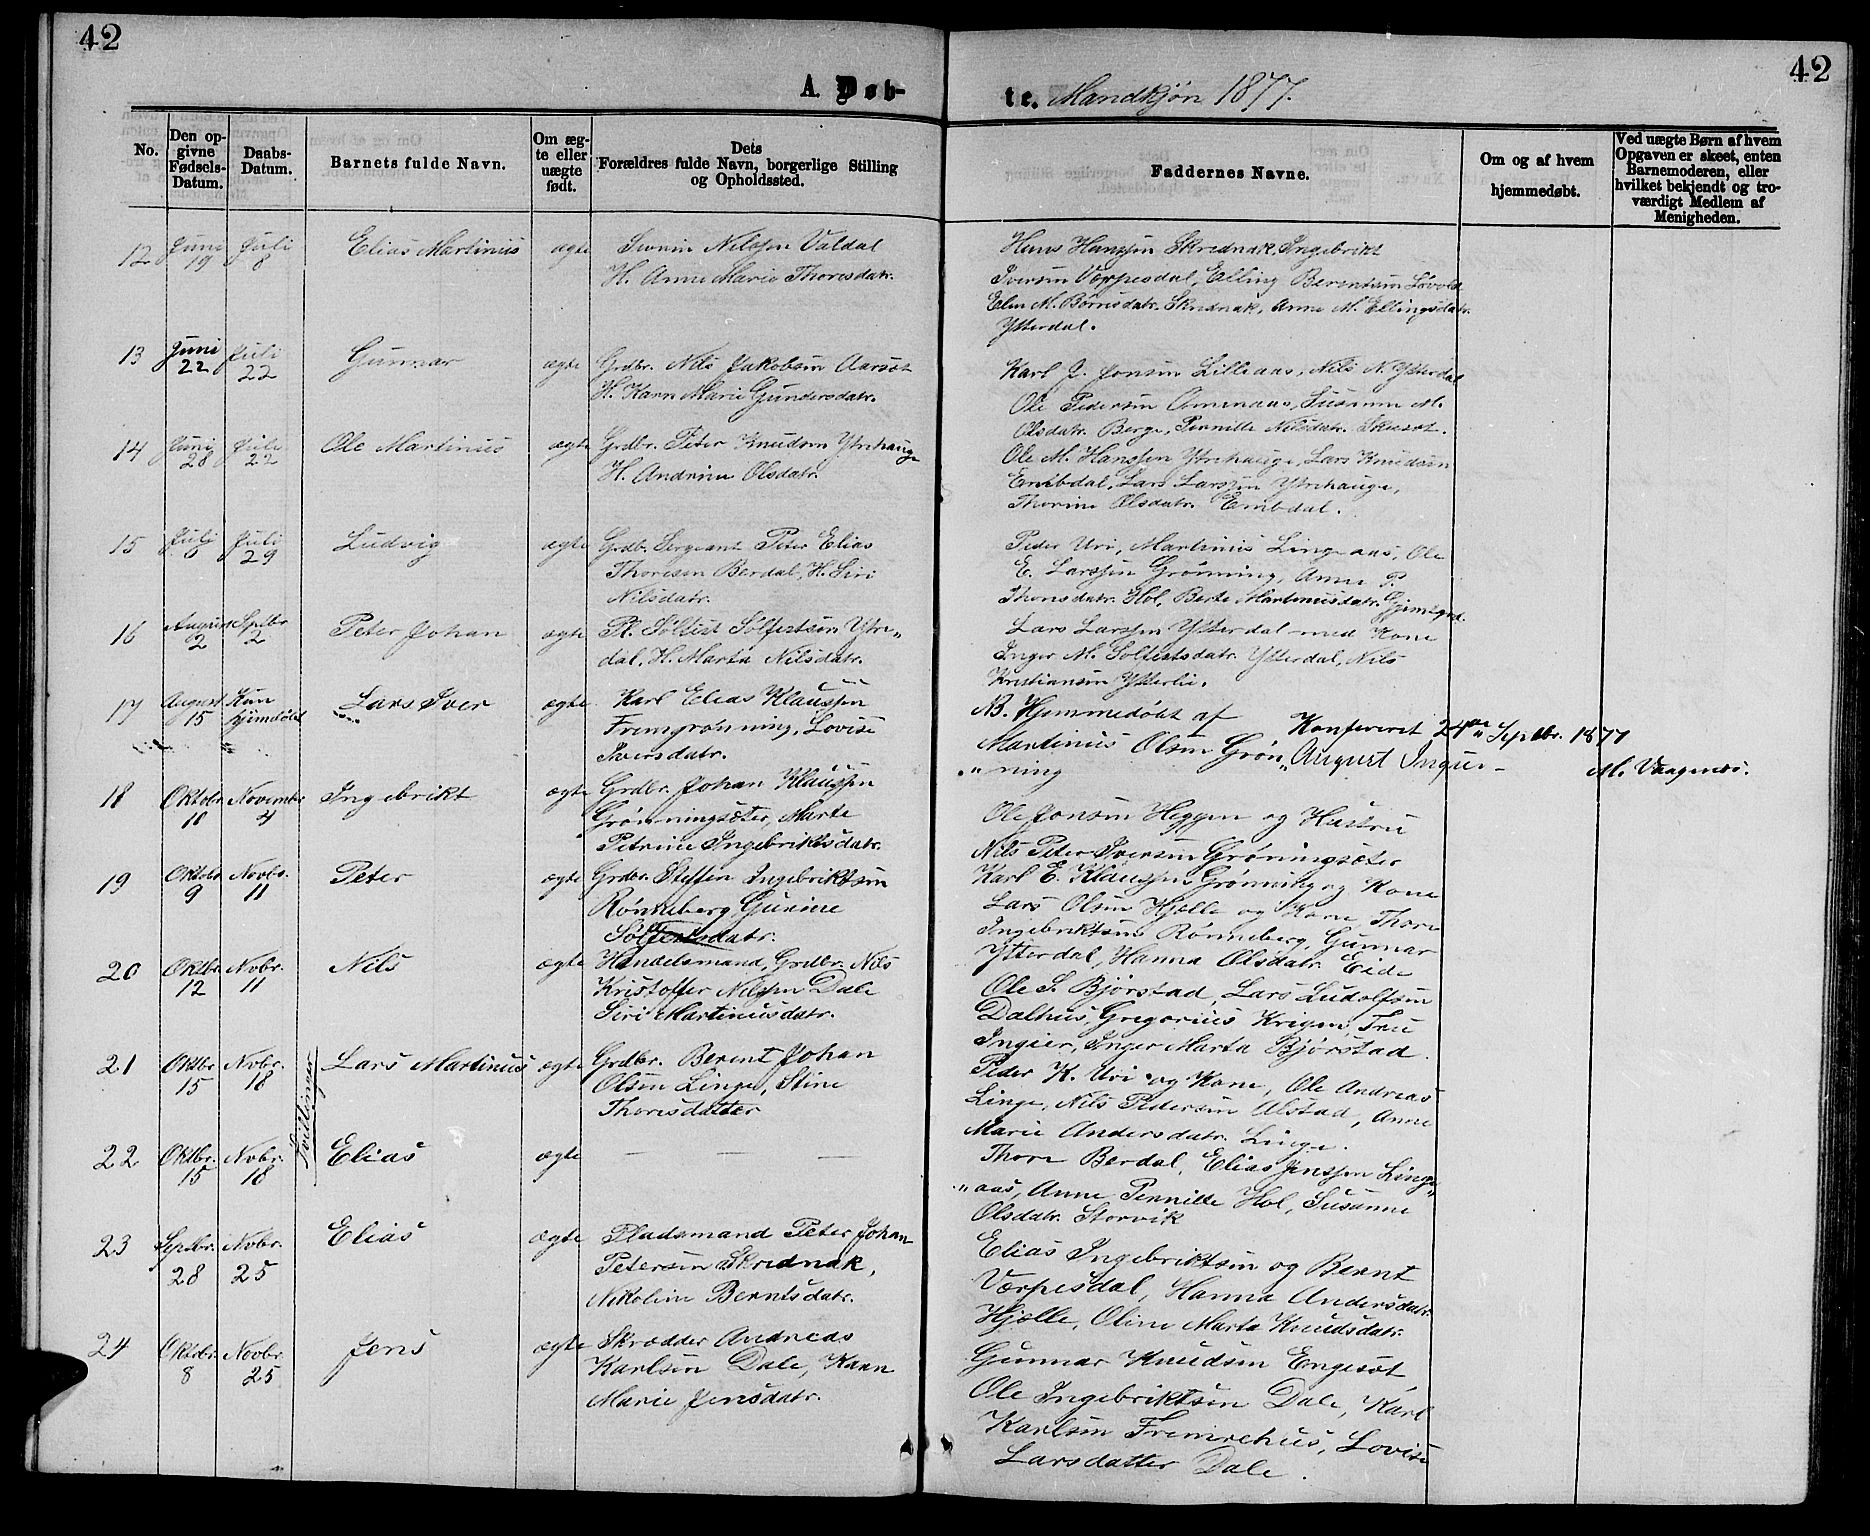 42
42
A. Døb-
te. Mandkjøn 1877.
No.
Den op-
givne
Fødsels-
Datum.
Daabs-
Datum.
Barnets fulde Navn.
Om æg-
te eller
uægte
født.
Dets
Forældres fulde Navn, borgerlige Stilling
og Opholdssted.
Faddernes Navne.
Om og af hvem
hjemmedøbt.
Ved uægte Børn af hvem
Opgaven er skeet, enten
Barnemoderen, eller
hvilket bekjendt og tro-
værdigt Medlem af
Menigheden.
12 Juni 19 Juli 8 Elias Martinius ægte Nilssen Valdal
H. Anne Marie Thoresdatr.
Hans Hanssen Skrednak, Ingebrikt
Iversen Værpesdal, Elling Berentsen Løvold
Elen M. Børresdatr. Skrednak, Anne M. Ellingsdatr.
Ytterdal.
13 Juni 22 Juli 22 Gunnar ægte Grdbr. Nils Jakobsen Aarset
H. Karen Marie Gundersdatr.
Karl J. Jonsen Lilleaas, Nils N. Ytterdal
Ole Pedersen Omenaas, Susanne M.
Olsdatr. Berge, Pernille Nilsdatr.
14 Juni 28 Juli 22 Ole Martinius ægte Grdbr. Peter Knudsen Ytrehauge
H. Andrine Olsdatr.
Ole M. Hanssen Ytrehauge, Lars Knudsen
Embdal, Lars Larssen Ytrehauge,
Thorine Olsdatr. Embdal.
15 Juli 6 Juli 29 Ludvig ægte Grdb. Sergeant Peter Elias
Thoresen Berdal, H. Siri
Nilsdatr.
Peder Uri, Martinius Lingeaas, Ole
E. Larssen Grønning, Anne P.
Thoresdatr. Hol, Berte Martinusdatr.
16 August 2 Septbr. 2 Peter Johan ægte Pl. Solfest Solfestsen Ytre-
dal, H. Marta Nilsdatr.
Lars Larssen Ytterdal med Kone
Inger M. Solfestsdatr. Ytterdal, Nils
Kristiansen Ytterlie.
17 August 15 Kun hjemdøbt Lars Iver ægte Karl Elias Klaussen
Fremgrønning, Lovise
Iversdatr.
NB. Hjemmedøbt af
Martinius Olsen Grøn-
ning
Konfereret 24de Septbr. 1877
August
M. Vaagenes.
18 Oktobr. 10 Novembr. 4 Ingebrikt ægte Grdbr. Johan Klaussen
Grønningsæter, Marte
Petrine Ingebriktsdatr.
Ole Jonsen Heggen og Hustru
Nils Peter Iversen Grøningsæter
Karl E. Klaussen Grønning og Kone
19 Oktobr. 9 Novbr. 11 Peter ægte Grdbr. Steffen Ingebriktsen
Rønneberg, Gurine
Solfestsdatr.
Lars Olsen Hjelle og Kone, Thore
Ingebriktsen Rønneberg, Gunnar
Ytterdal, Hanna Olsdatr. Eide
20 Oktbr. 12 Novbr. 11 Nils ægte Handelsmand, Grdbr. Nils
Kristoffer Nilssen Dale
Siri Martinusdatr.
Ole S. Bjørstad, Lars Ludolfsen
Dalhus, Gregorius Krigen, Fru
Ingier, Inger Marta Bjørstad.
21 Oktbr. 15 Novbr. 18 Tvillinger Lars Martinius ægte Grdbr. Berent Johan
Olsen Linge, Stine
Thoresdatter
Peder K. Uri og Kone, Ole Andreas
Linge, Nils Pedersen Ulstad, Anne
Marie Andersdatr. Linge.
22 Oktbr. 15 Novbr. 18 Elias ægte — — —
Thore Berdal, Elias Jenssen Linge-
aas, Anne Pernille Hol, Susanne
Olsdatr. Storvik
23 Septbr. 28 Novbr. 25 Elias ægte Pladsmand Peter Johan
Petersen Skrednak,
Nikoline Berntsdatr.
Elias Ingebriktsen og Bernt
Værpesdal, Hanna Andersdatr.
Hjelle, Oline Marta Knudsdatr.
24 Oktobr. 8 Novbr. 25 Jens ægte Skrædder Andreas
Karlsen Dale, Karen
Marie Jensdatr.
Gunnar Knudsen Engeset
Ole Ingebriktsen Dale, Karl
Karlsen Fremrehus, Lovise
Larsdatter Dale.